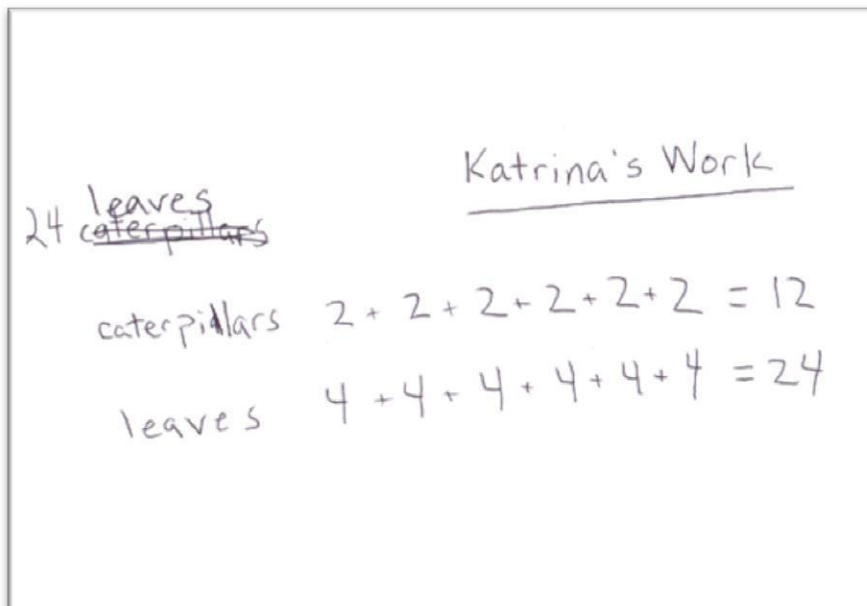 Katrina's Work
leaves
24 caterpillars
caterpillars 2 + 2 + 2 + 2 + 2 + 2 = 12
leaves 4 + 4 + 4 + 4 + 4 + 4 = 24